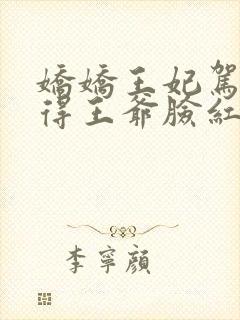 嬌嬌王妃駕
得王爺臉紅
李寧顏